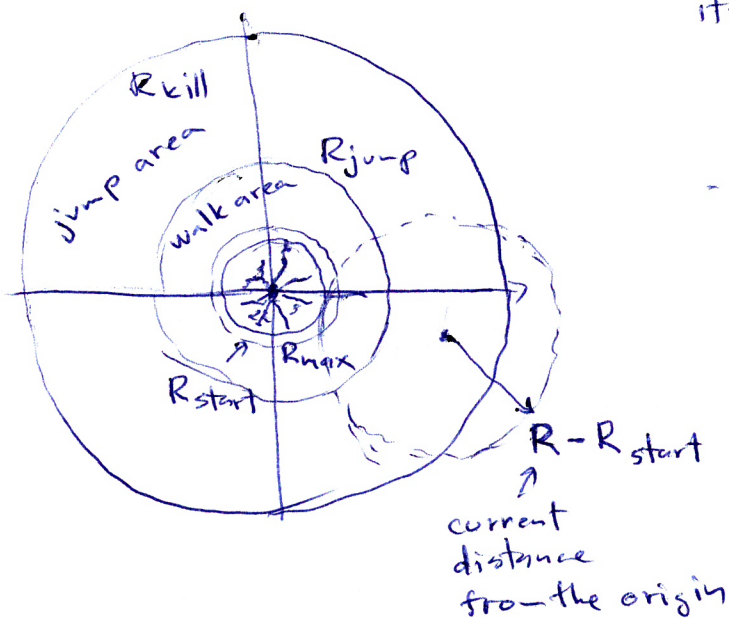 it
Rkill
jump area
Rjump
walk area
Rmax
Rstart
R - Rstart
current
distance
from the origin